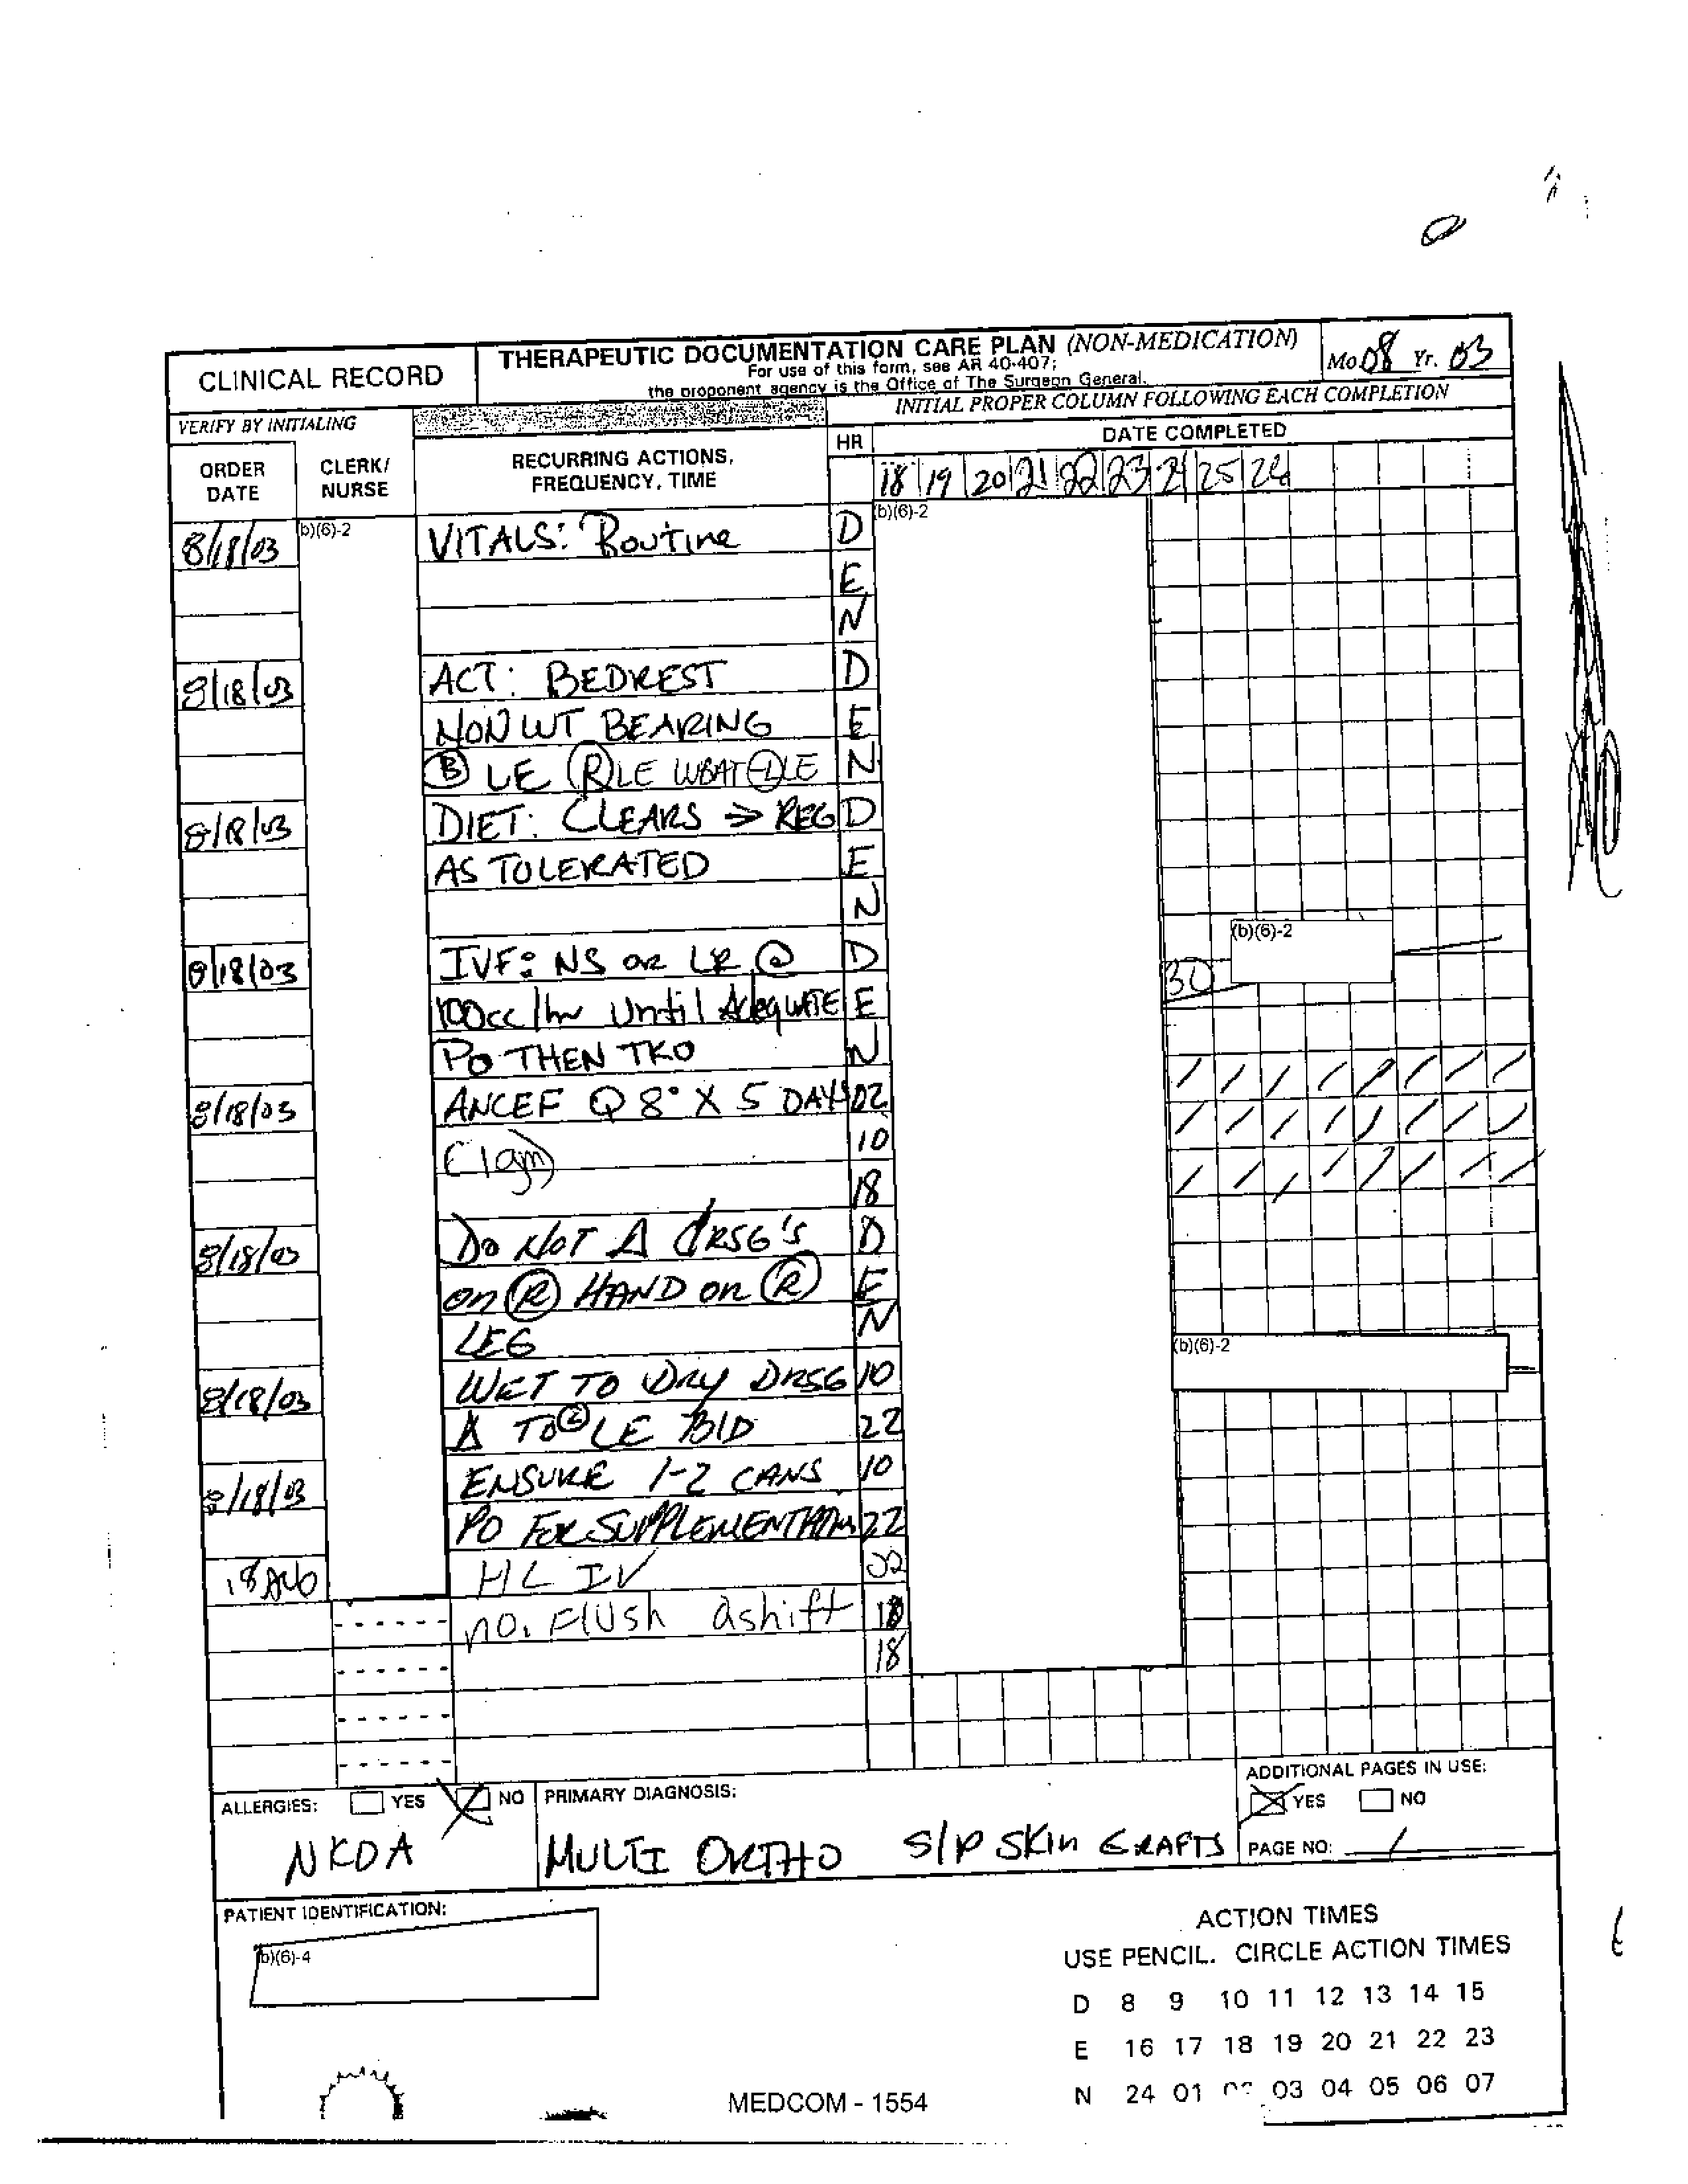 CLINICAL RECORD
THERAPEUTIC DOCUMENTATION CARE PLAN (NON-MEDICATION)
For use of this form, see AR 40-407;
the proponent agency is the Office of The Surgeon General.
Mo. 08 Yr. 03
VERIFY BY INITIALING
INITIAL PROPER COLUMN FOLLOWING EACH COMPLETION
ORDER DATE
CLERK/ NURSE
RECURRING ACTIONS, FREQUENCY, TIME
HR
DATE COMPLETED
18 19 20 21 22 23 24 25 26
8/18/03 (b)(6)-2 VITALS: Routine D (b)(6)-2
E
N
8/18/03 ACT: BEDREST D
NON WT BEARING E
(B) LE (R) LE WBAT (L) LE N
8/18/03 DIET: CLEARS → REG D
AS TOLERATED E
N
(b)(6)-2
8/18/03 IVF: NS OR LR @ D
100cc/hr Until AdeqUATE E
PO THEN TKO N
8/18/03 ANCEF Q 8° X 5 DAYS 02
(1gm) 10
18
8/18/03 Do NOT Δ DRSG'S D
on (R) HAND OR (R) E
LEG N
(b)(6)-2
8/18/03 WET TO DRY DRSG 10
Δ TO LE BID 22
8/18/03 ENSURE 1-2 CANS 10
PO FOR SUPPLEMENTATION 22
18 AUG HL IV 02
Flush qshift 10
18
ALLERGIES: YES NO
NKDA
PRIMARY DIAGNOSIS:
MULTI ORTHO S/P SKIN GRAFTS
ADDITIONAL PAGES IN USE:
YES NO
PAGE NO: 1
PATIENT IDENTIFICATION:
(b)(6)-4
ACTION TIMES
USE PENCIL. CIRCLE ACTION TIMES
D 8 9 10 11 12 13 14 15
E 16 17 18 19 20 21 22 23
N 24 01 03 04 05 06 07
MEDCOM - 1554